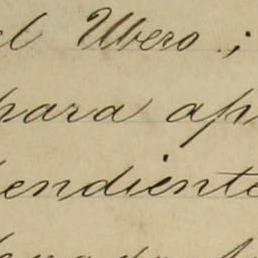 el Ubero.;
para ap
endiente